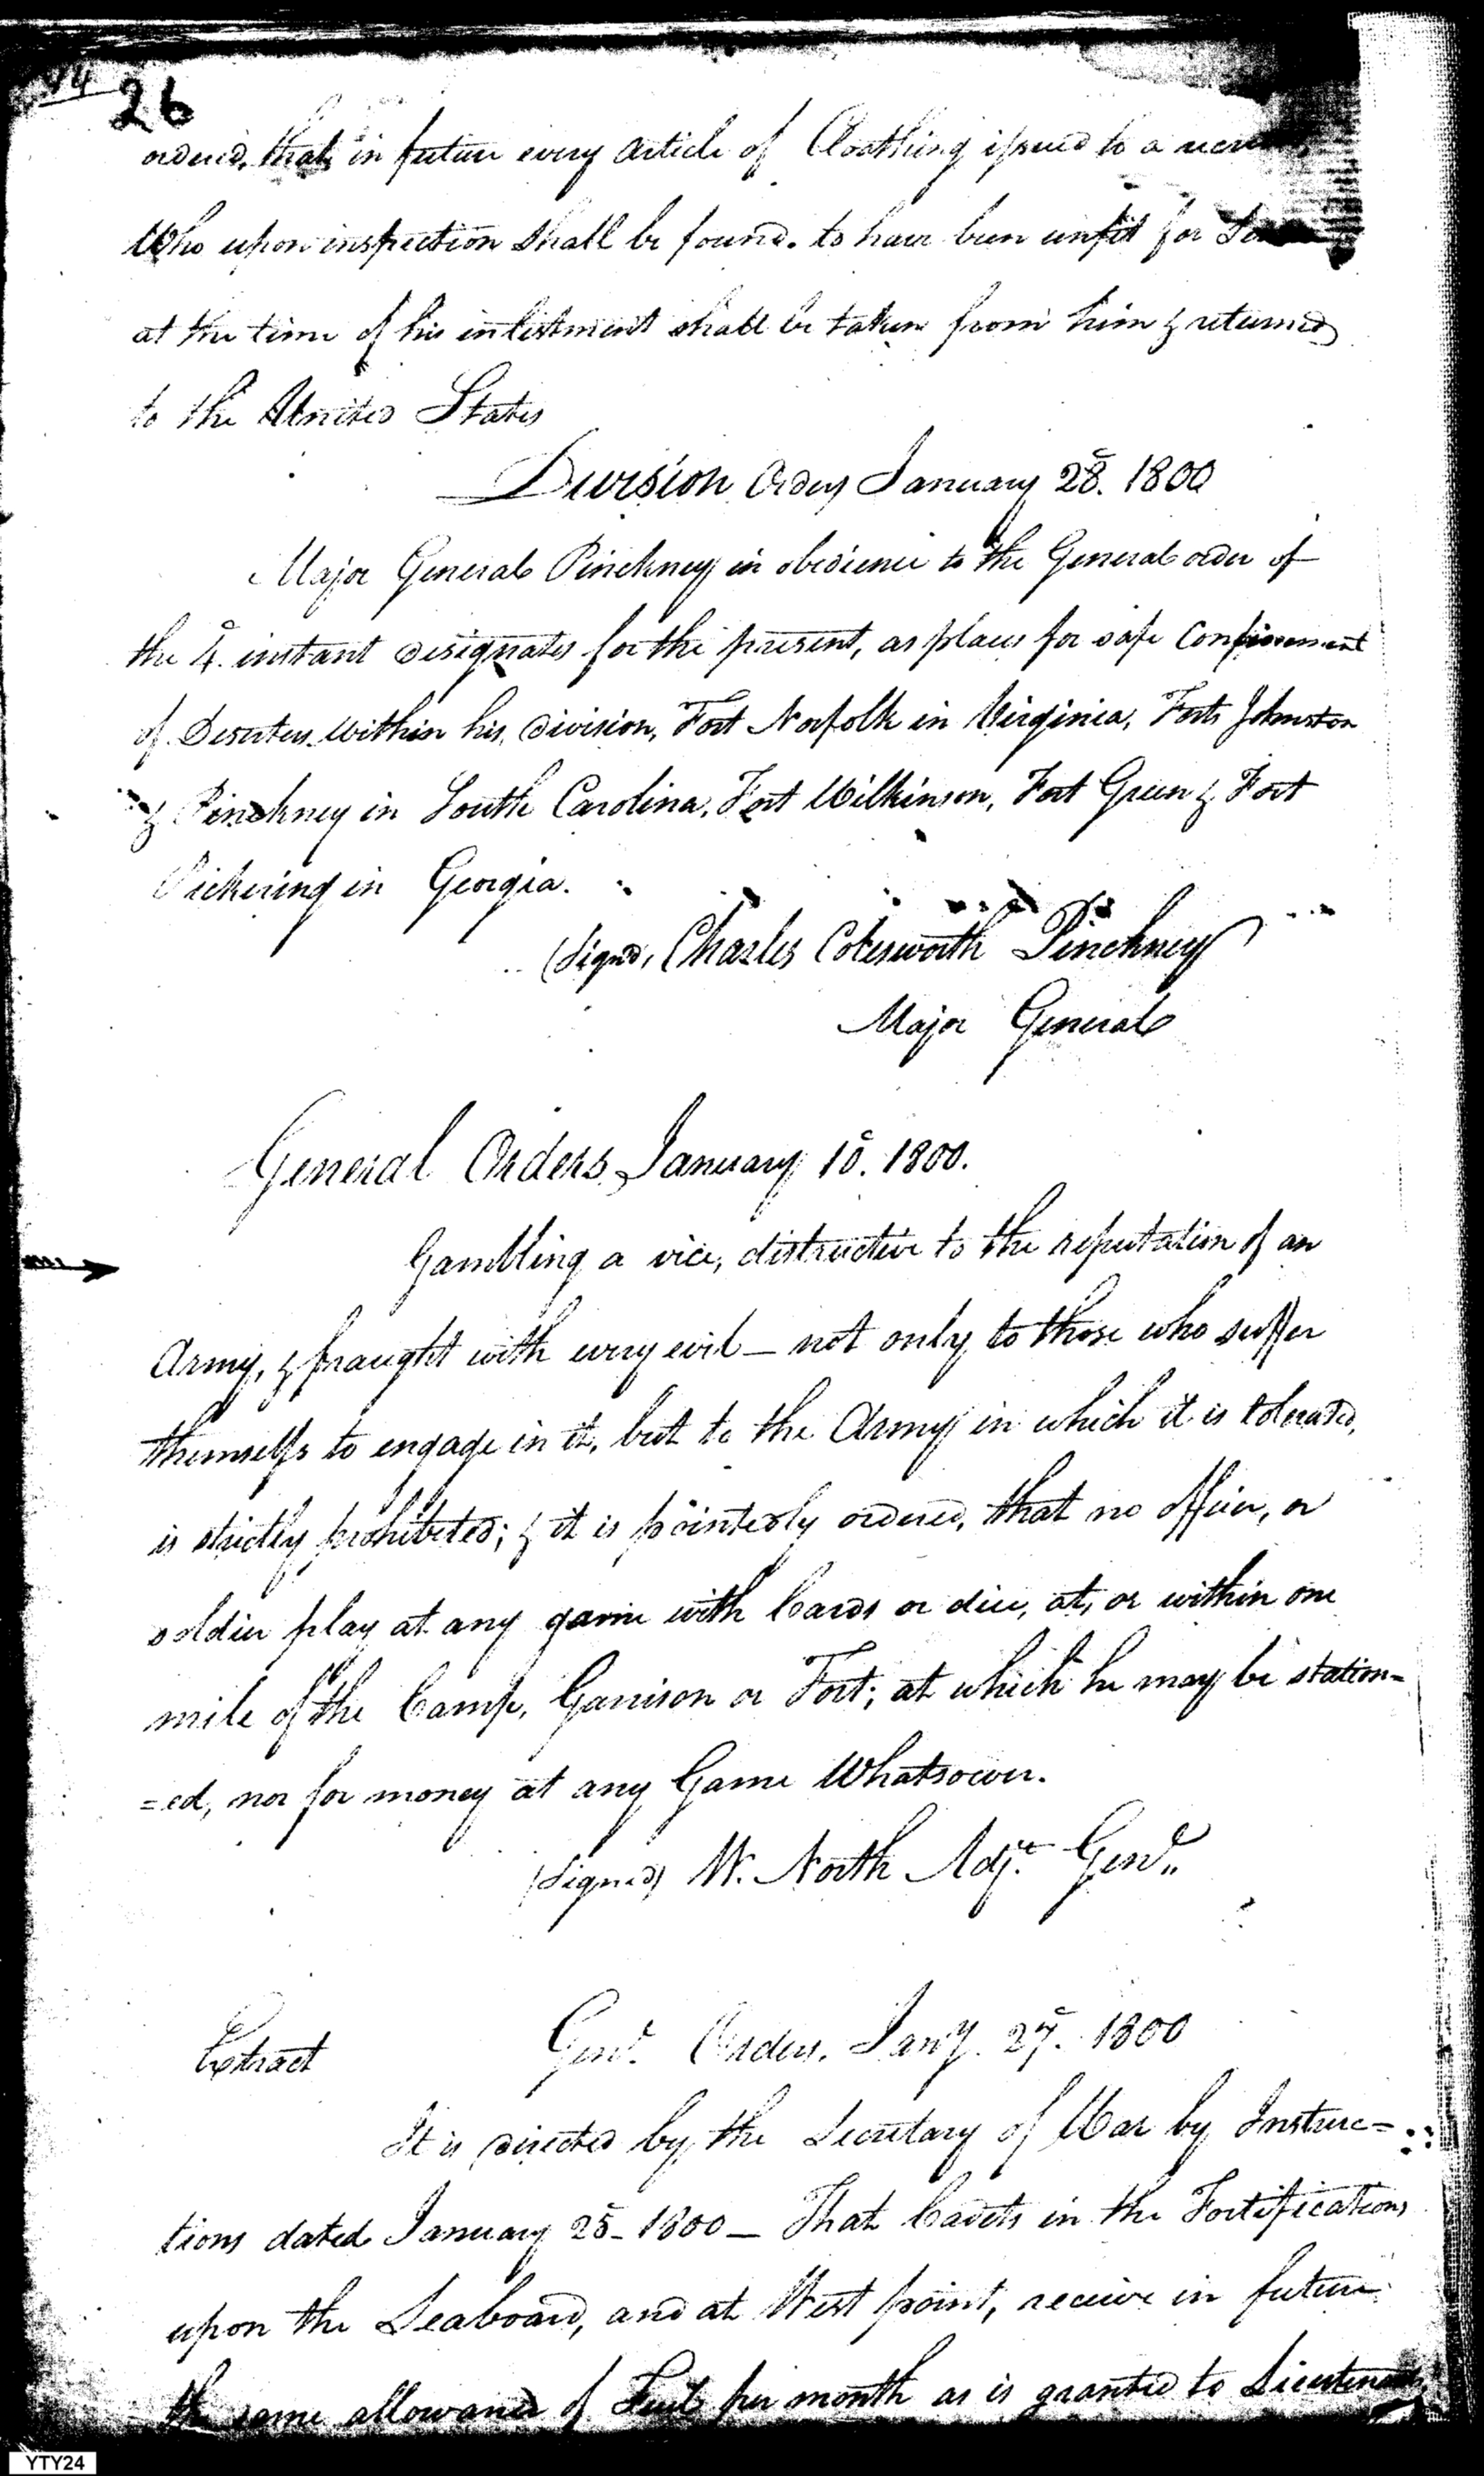 26
ordered, that in future every article of Cloathing issued to a
Who upon inspection shall be found. to have been unfit for
at the time of his inlistment shall be taken from him & returned
to the United States
Division Orders January 28. 1800
Major General Pinckney in obedience to the General order of
the 4. instant designates for the present, as places for safe Confinement
of Deserters within his, division, Fort Norfolk in Virginia, Forts Johnston
& Pinckney in South Carolina, Fort Wilkinson, Fort Green & Fort
Pickering in Georgia.
(Signd, Charles Cotesworth Pinckney
Major General
General Orders January 10. 1800.
Gambling a vice, distructive to the reputation of an
Army, & fraught with every evil — not only to those who suffer
themselfs to engage in it, but to the Army in which it is tolerated,
is strictly prohibited; & it is pointedly ordered, that no officer, or
soldier play at any game with Cards or dice, at, or within one
mile of the Camp, Garrison or Fort; at which he may be station=
=ed, nor for money at any Game Whatsoever.
(Signed) W. North Adjt. Genl.
Extract Genl. Orders. Jany. 27. 1800
It is directed by the Secretary of War by Instruc=
tions dated January 25 - 1800 — That Cadets in the Fortifications
upon the Seaboard, and at West point, receive in future
the same allowance of Fuel per month as is granted to Lieutenants
YTY24